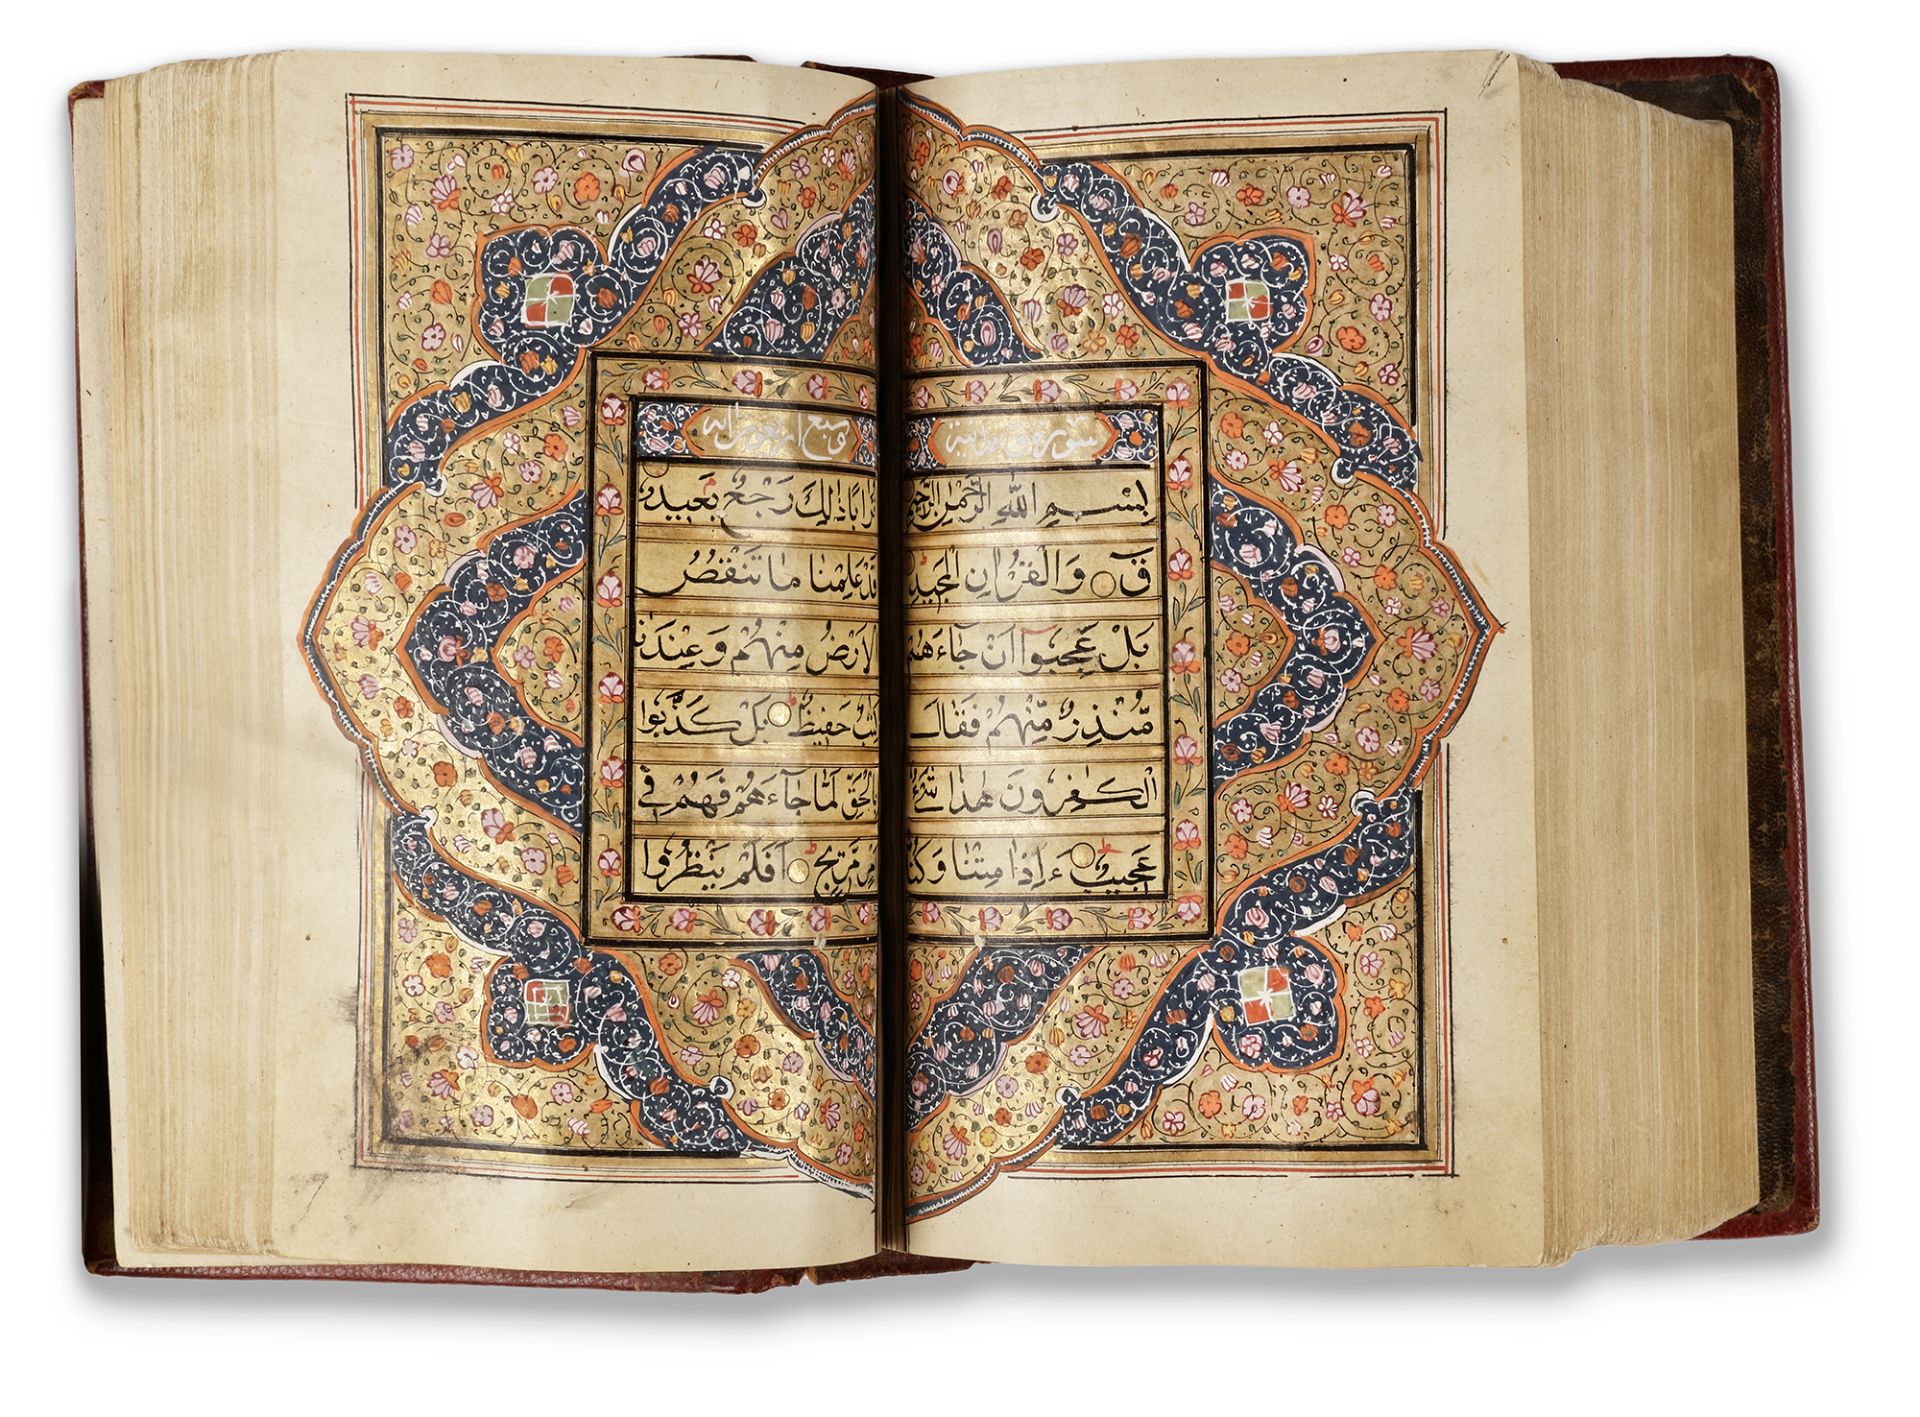 سورة ق مدنية
بِسْمِ اللّٰهِ الرَّحْمٰنِ الرَّحِيمِ
قٓ وَالْقُرْاٰنِ الْمَجِيْدِ
بَلْ عَجِبُوٓا اَنْ جَآءَهُمْ
مُنْذِرٌ مِّنْهُمْ فَقَالَ
الْكٰفِرُونَ هٰذَا شَيْءٌ
عَجِيبٌ ءَاِذَا مِتْنَا وَكُنَّا
وسبع اربعون اية
تُرَابًا ذٰلِكَ رَجْعٌ بَعِيدٌ
قَدْ عَلِمْنَا مَا تَنْقُصُ
الْاَرْضُ مِنْهُمْ وَعِنْدَنَا
كِتٰبٌ حَفِيظٌ بَلْ كَذَّبُوا
بِالْحَقِّ لَمَّا جَآءَهُمْ فَهُمْ فِي
اَمْرٍ مَرِيجٍ اَفَلَمْ يَنْظُرُوا